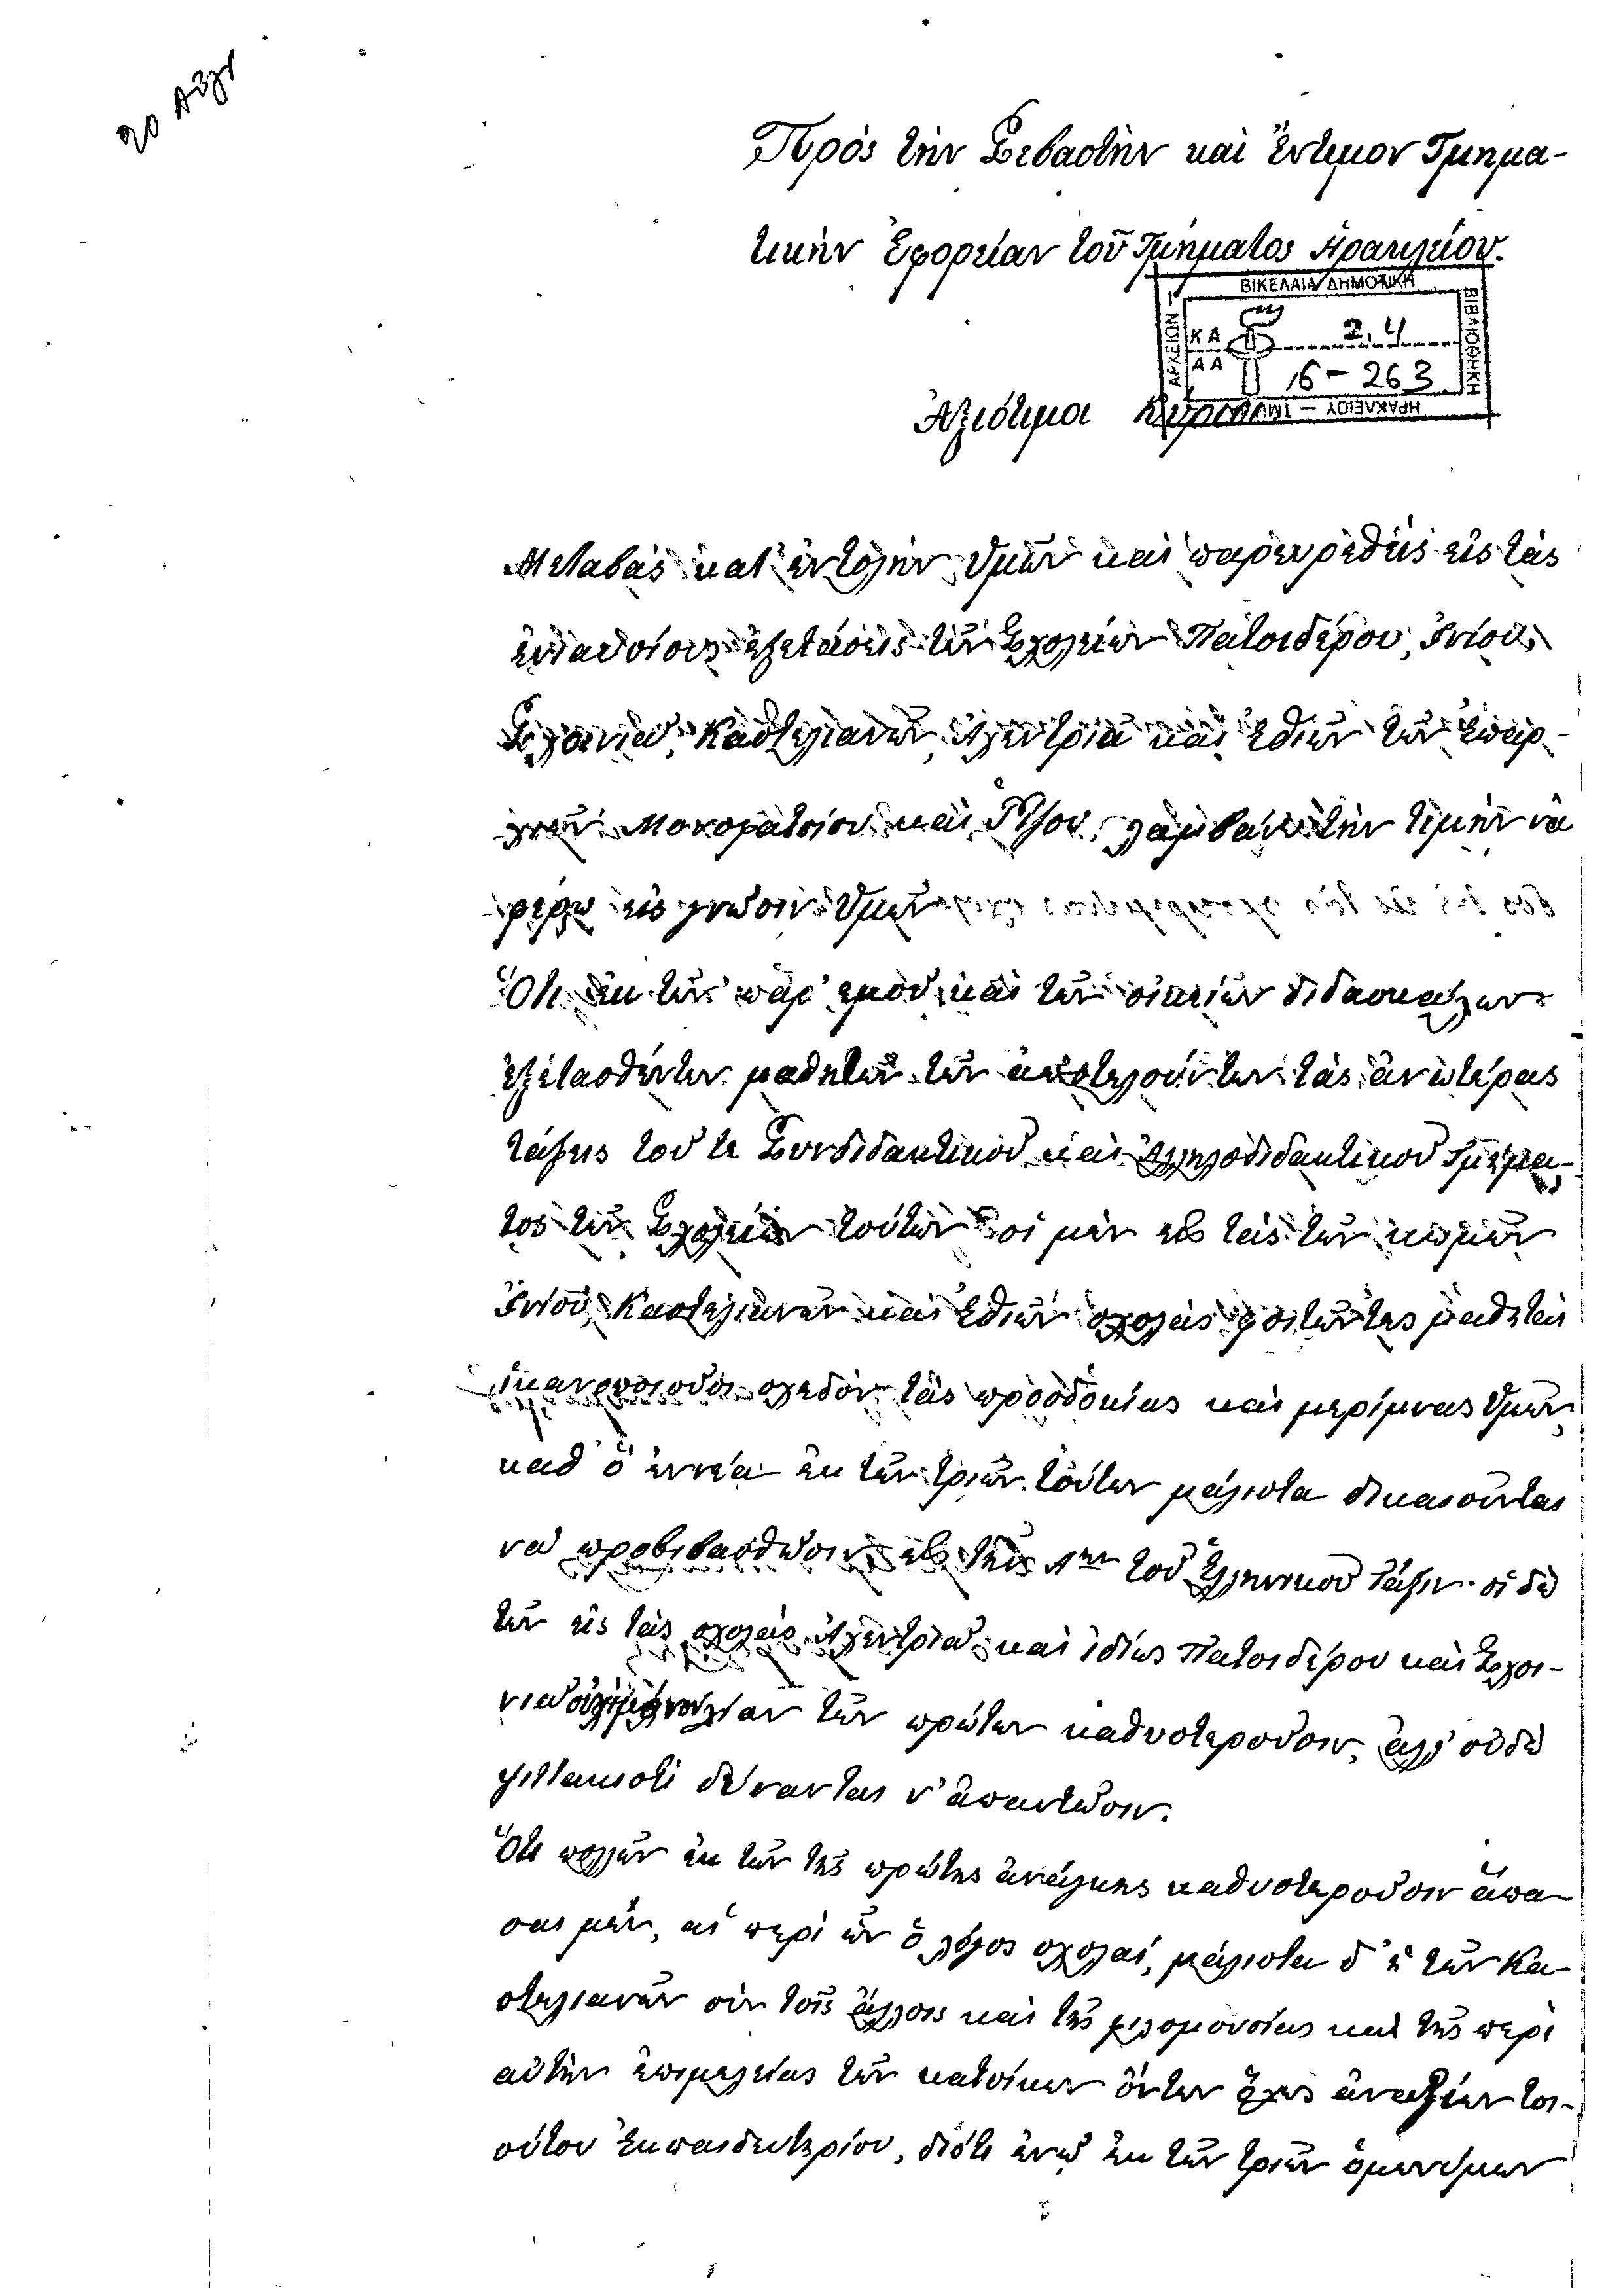 20 Αὐγ
Πρὸς τὴν Σεβαστὴν καὶ Ἔντιμον Τμημα-
τικὴν Ἐφορείαν τοῦ Τμήματος Ἡρακλείου.
ΒΙΚΕΛΑΙΑ ΔΗΜΟΤΙΚΗ
ΒΙΒΛΙΟΘΗΚΗ
ΗΡΑΚΛΕΙΟΥ — ΤΜΗΜΑ
ΑΡΧΕΙΩΝ —
ΚΑ 2,4
ΑΑ 16-263
Ἀξιότιμοι Κύριοι
Μεταβὰς κατ' ἐντολὴν Ὑμῶν καὶ παρευρεθεὶς εἰς τὰς
ἐνιαυσίους ἐξετάσεις τῶν Σχολείων Πατσιδέρου, Ἰνίου,
Σχοινιᾶ, Καστελιανῶν, Λιγεντριᾶ καὶ Ἐθιῶν τῶν Ἐπαρ-
χιῶν Μονοφατσίου καὶ Ῥίζου, λαμβάνω τὴν τιμὴν νὰ
φέρω εἰς γνῶσιν Ὑμῶν
Ὅτι ἐκ τῶν παρ' ἐμοῦ καὶ τῶν οἰκείων διδασκάλων
ἐξετασθέντων μαθητῶν τῶν ἀποτελούντων τὰς ἀνωτέρας
τάξεις τοῦ τε Συνδιδακτικοῦ καὶ Ἀλληλοδιδακτικοῦ Τμήμα-
τος τῶν Σχολείων τούτων οἱ μὲν εἰς τὰς τῶν κωμῶν
Ἰνίου, Καστελιανῶν καὶ Ἐθιῶν σχολὰς φοιτῶντες μαθηταὶ
ἱκανοποιοῦσι σχεδὸν τὰς προσδοκίας καὶ μερίμνας Ὑμῶν,
καθ' ὃ ἐννέα ἐκ τῶν τριῶν τούτων μάλιστα δικαιοῦνται
νὰ προβιβασθῶσιν εἰς τὴν Αην τοῦ Ἑλληνικοῦ τάξιν· οἱ δὲ
τῶν εἰς τὰς σχολὰς Λιγεντριᾶ καὶ ἰδίως Πατσιδέρου καὶ Σχοι-
νιᾶ οὐ μόνον λίαν τῶν πρώτων καθυστεροῦσιν, ἀλλ' οὐδὲ
ψιττακιστὶ δύνανται ν' ἀπαντῶσιν.
Ὅτι πολλῶν ἐκ τῶν τῆς πρώτης ἀνάγκης καθυστεροῦσιν ἅπα-
σαι μὲν, αἱ περὶ ὧν ὁ λόγος σχολαί, μάλιστα δ' ἡ τῶν Κα-
στελιανῶν σὺν τοῖς ἄλλοις καὶ τῆς φιλομουσίας καὶ τῆς περὶ
αὐτὴν ἐπιμελείας τῶν κατοίκων ὄντων ὅλως ἀναξίων τοι-
ούτου ἐκπαιδευτηρίου, διότι ἐνῷ ἐκ τῶν τριῶν ὁμωνύμων